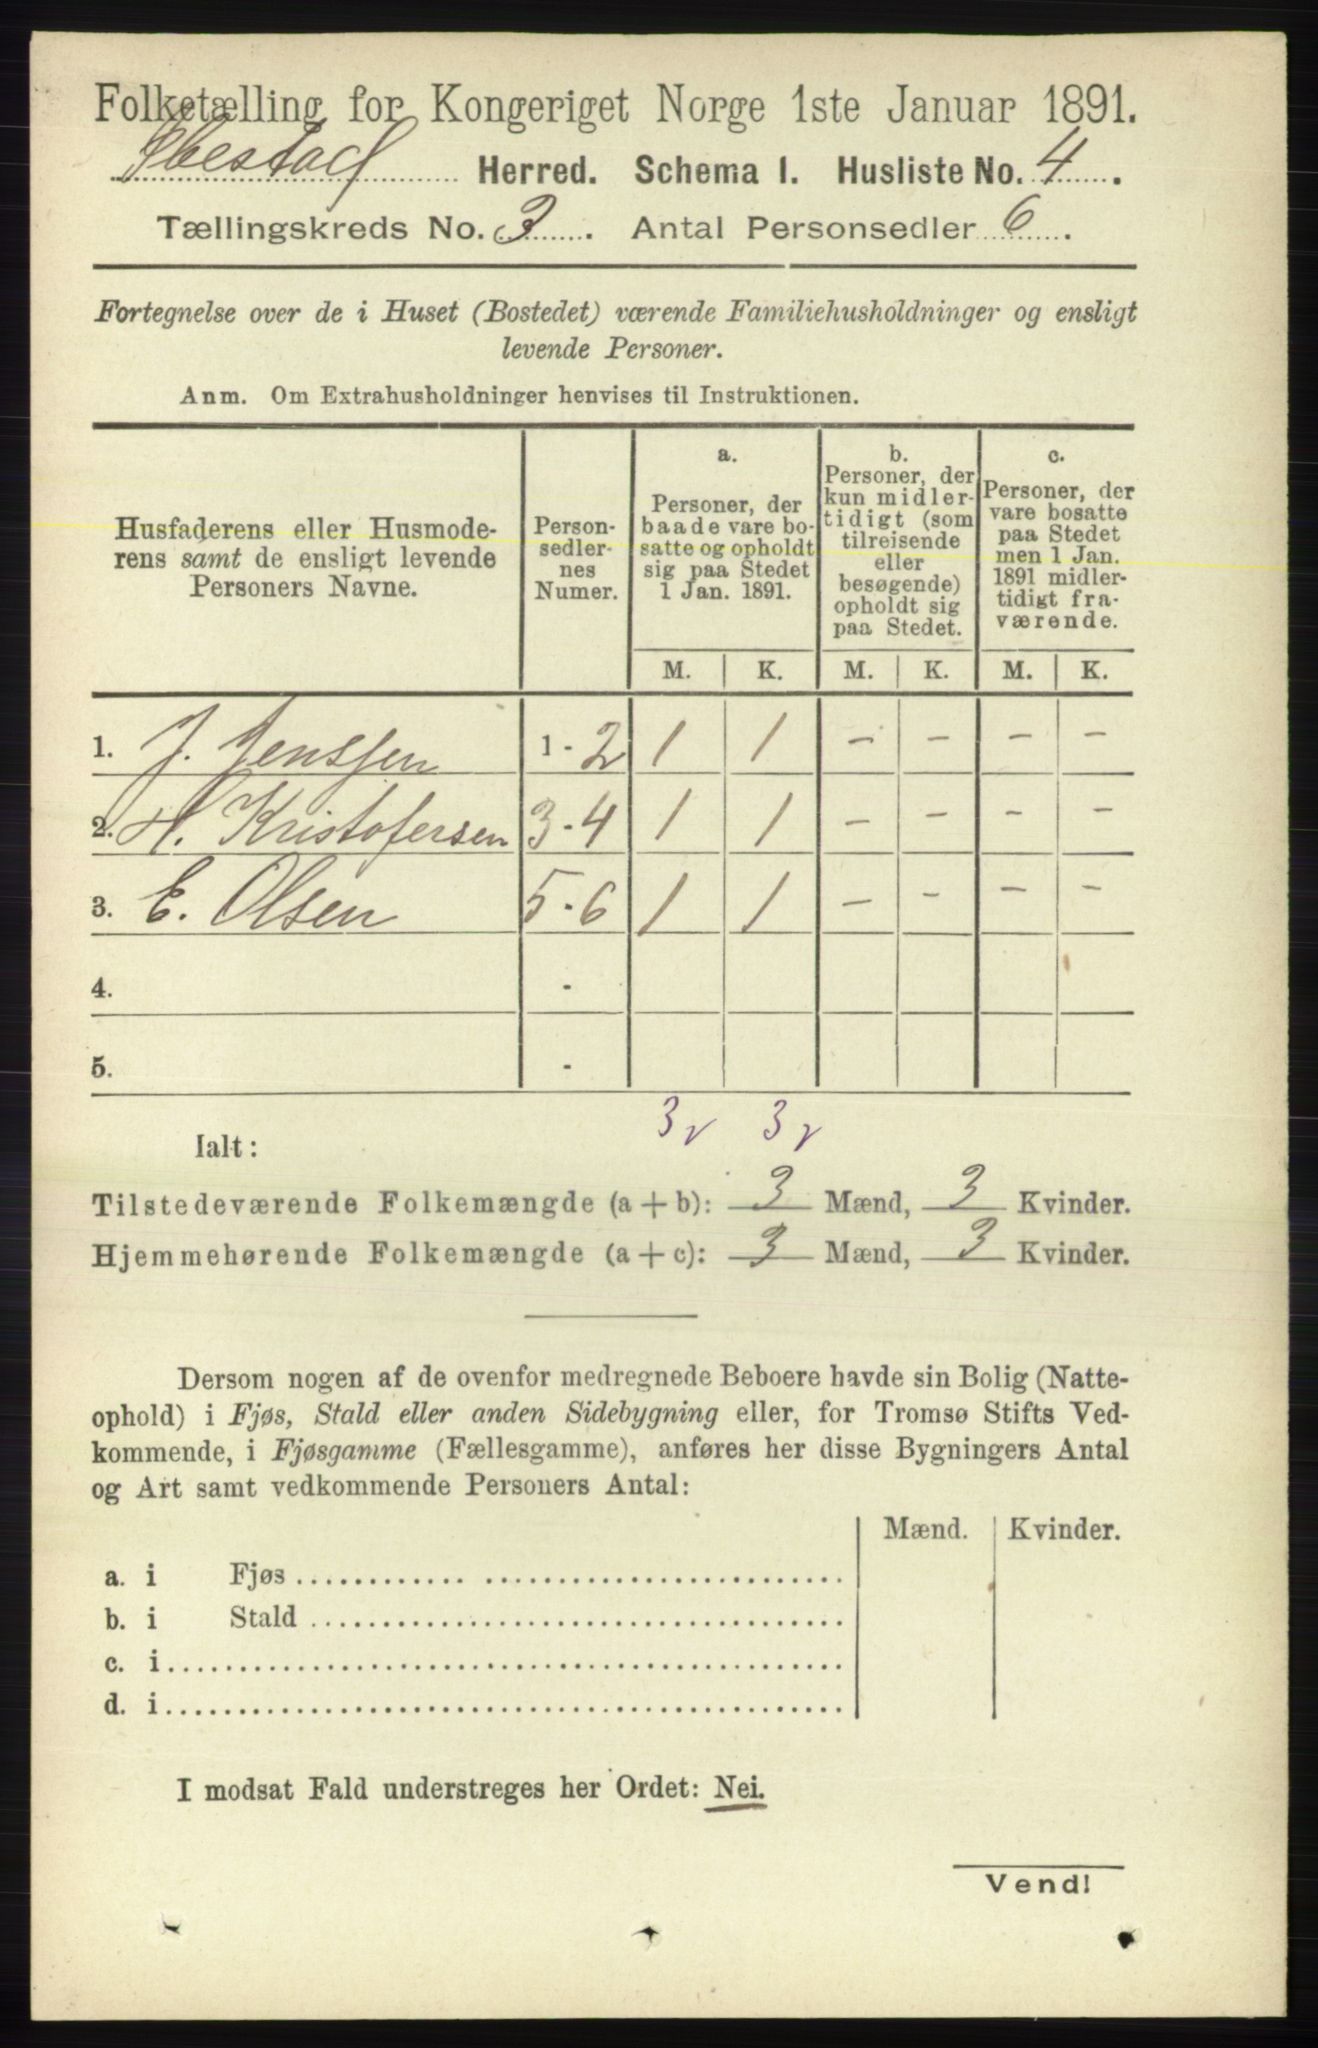 Folketælling for Kongeriget Norge 1ste Januar 1891.
Ibestad Herred. Schema I. Husliste No. 4.
Tællingskreds No. 3. Antal Personsedler 6.
Fortegnelse over de i Huset (Bostedet) værende Familiehusholdninger og ensligt
levende Personer.
Anm. Om Extrahusholdninger henvises til Instruktionen.
Husfaderens eller Husmode-
rens samt de ensligt levende
Personers Navne.
Person-
sedler-
nes
Numer.
a.
Personer, der
baade vare bo-
satte og opholdt
sig paa Stedet
1 Jan. 1891.
b.
Personer, der
kun midler-
tidigt (som
tilreisende
eller
besøgende)
opholdt sig
paa Stedet.
c.
Personer, der
vare bosatte
paa Stedet
men 1 Jan.
1891 midler-
tidigt fra-
værende.
M. K. M. K. M. K.
1. J. Jenssen 1 - 2 1 1 – – – –
2. H. Kristofersen 3 - 4 1 1 – – – –
3. E. Olsen 5 - 6 1 1 – – – –
4. -
5. -
3 v 3 v
Ialt:
Tilstedeværende Folkemængde (a + b): 3 Mænd, 3 Kvinder.
Hjemmehørende Folkemængde (a + c): 3 Mænd, 3 Kvinder.
Dersom nogen af de ovenfor medregnede Beboere havde sin Bolig (Natte-
ophold) i Fjøs, Stald eller anden Sidebygning eller, for Tromsø Stifts Ved-
kommende, i Fjøsgamme (Fællesgamme), anføres her disse Bygningers Antal
og Art samt vedkommende Personers Antal:
Mænd. Kvinder.
a. i Fjøs
b. i Stald
c. i
d. i
I modsat Fald understreges her Ordet: Nei.
Vend!